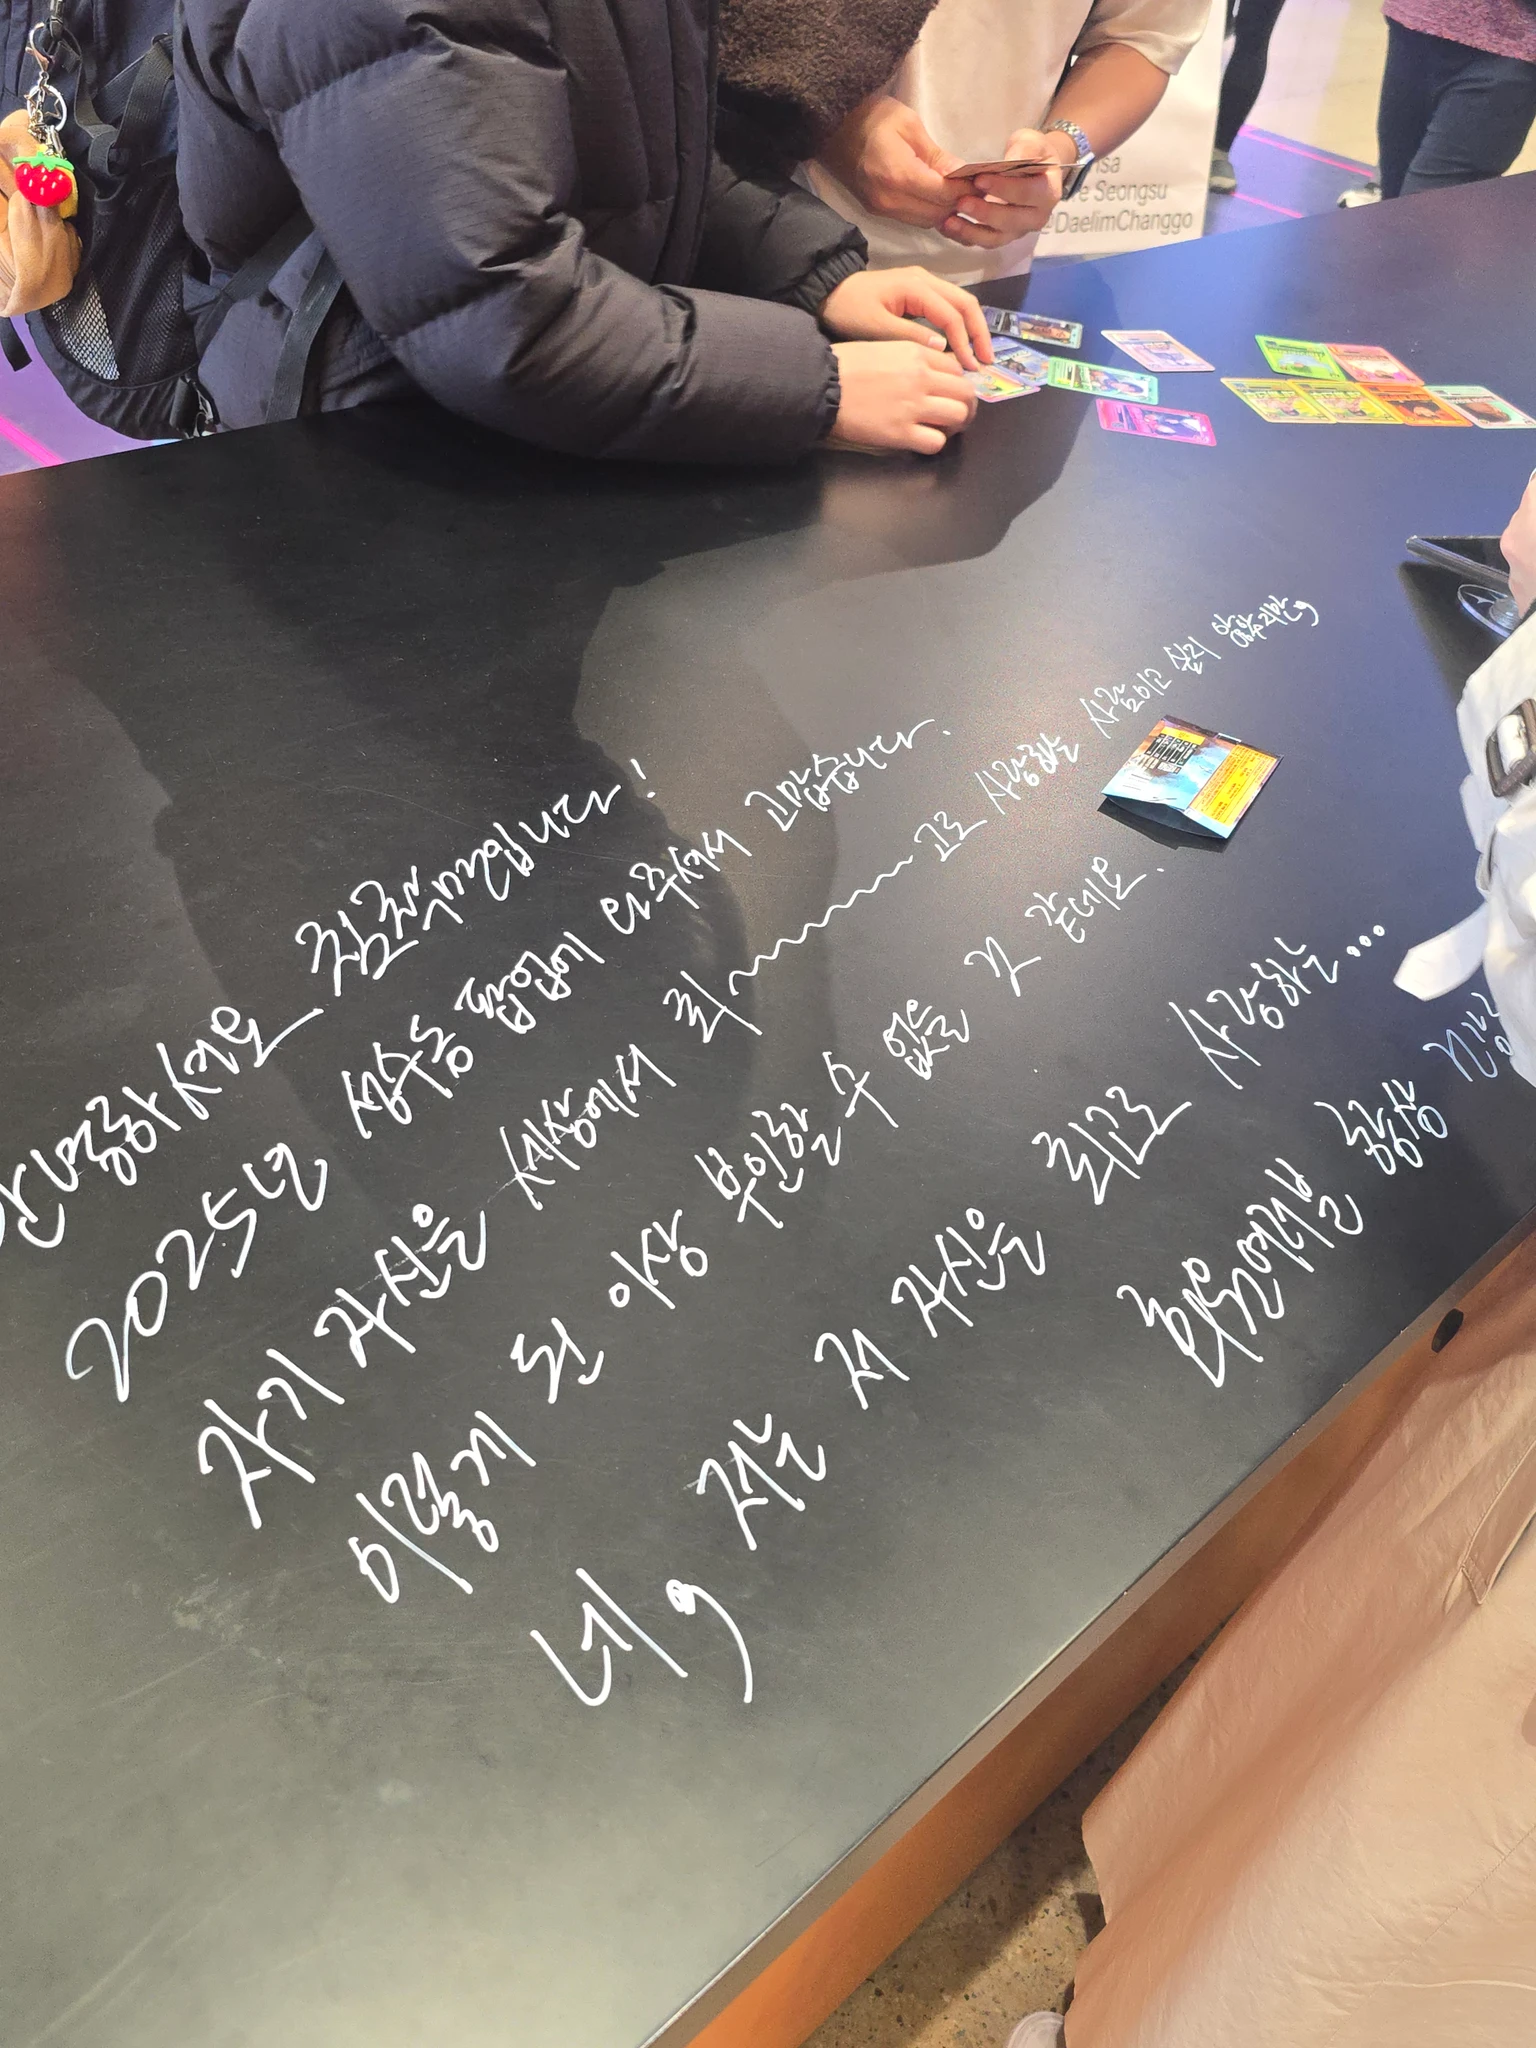 re Seongsu
@DaelimChanggo
안녕하세요 침착맨입니다!
2025년 성수동 팝업에 와주셔서 고맙습니다.
자기 자신을 세상에서 최~~~~~고로 사랑하는 사람이고 싶지 않았지만,
이렇게 된 이상 부인할 수 없을 것 같네요.
네, 저는 저 자신을 최고로 사랑하는...
회원여러분 항상